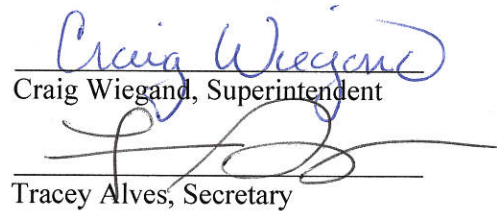 Craig Wiegand
Craig Wiegand, Superintendent
Tracey Alves, Secretary